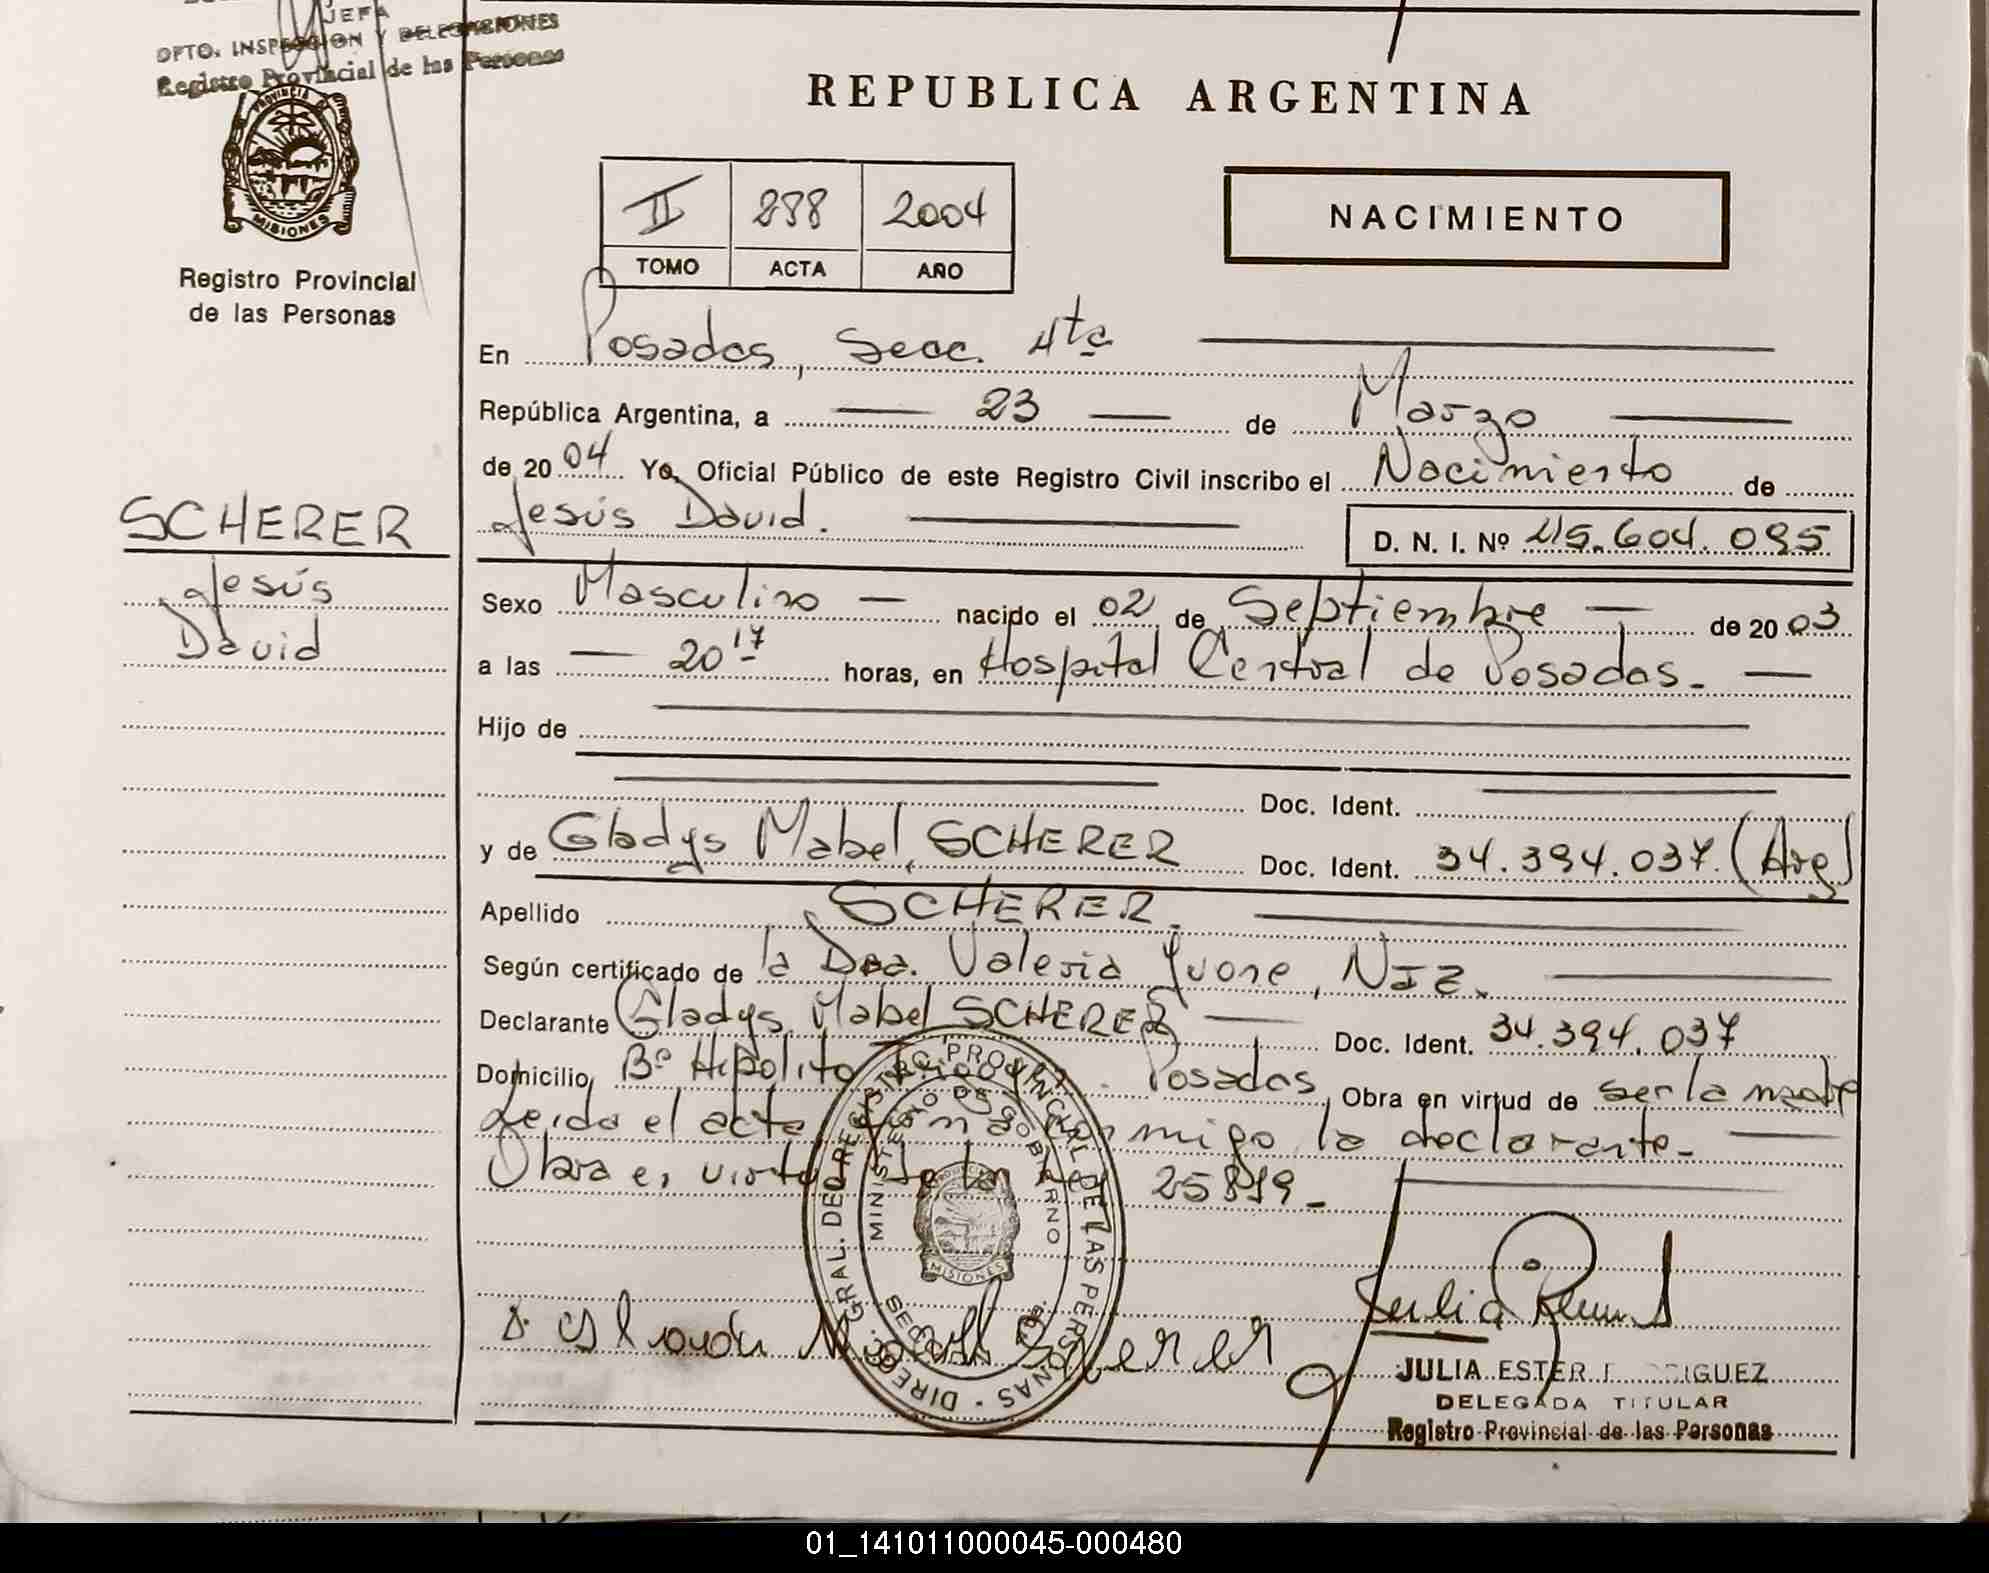 JEFA
DPTO. INSPECCION Y DELEGACIONES
Registro Provincial de las Personas
PROVINCIA DE
MISIONES
Registro Provincial
de las Personas
REPUBLICA ARGENTINA
II 298 2004
TOMO ACTA AÑO
NACIMIENTO
En Posadas, Secc. 4ta
República Argentina, a 23 de Marzo
de 2004 Yo, Oficial Público de este Registro Civil inscribo el Nacimiento de
Jesús David.
D. N. I. Nº 45.604.095
SCHERER
Jesús
David
Sexo Masculino nacido el 02 de Septiembre de 2003
a las 20 17 horas, en Hospital Central de Posadas.
Hijo de
Doc. Ident.
y de Gladys Mabel, SCHERER Doc. Ident. 34.394.037. (Arg)
Apellido SCHERER.
Según certificado de la Dra. Valeria Yvone, NIZ.
Declarante Gladys Mabel SCHERER Doc. Ident. 34.394.037
Domicilio Bº Hipolito Posadas Obra en virtud de ser la madre
Leida el acta firma conmigo la declarante.
Obra en virtud de la Ley 25819
DIREC. GRAL. DEL REGISTRO PROVINCIAL DE LAS PERSONAS
MINISTERIO DE GOBIERNO
MISIONES
Scherer
JULIA ESTER RODRIGUEZ
DELEGADA TITULAR
Registro Provincial de las Personas
01_141011000045-000480